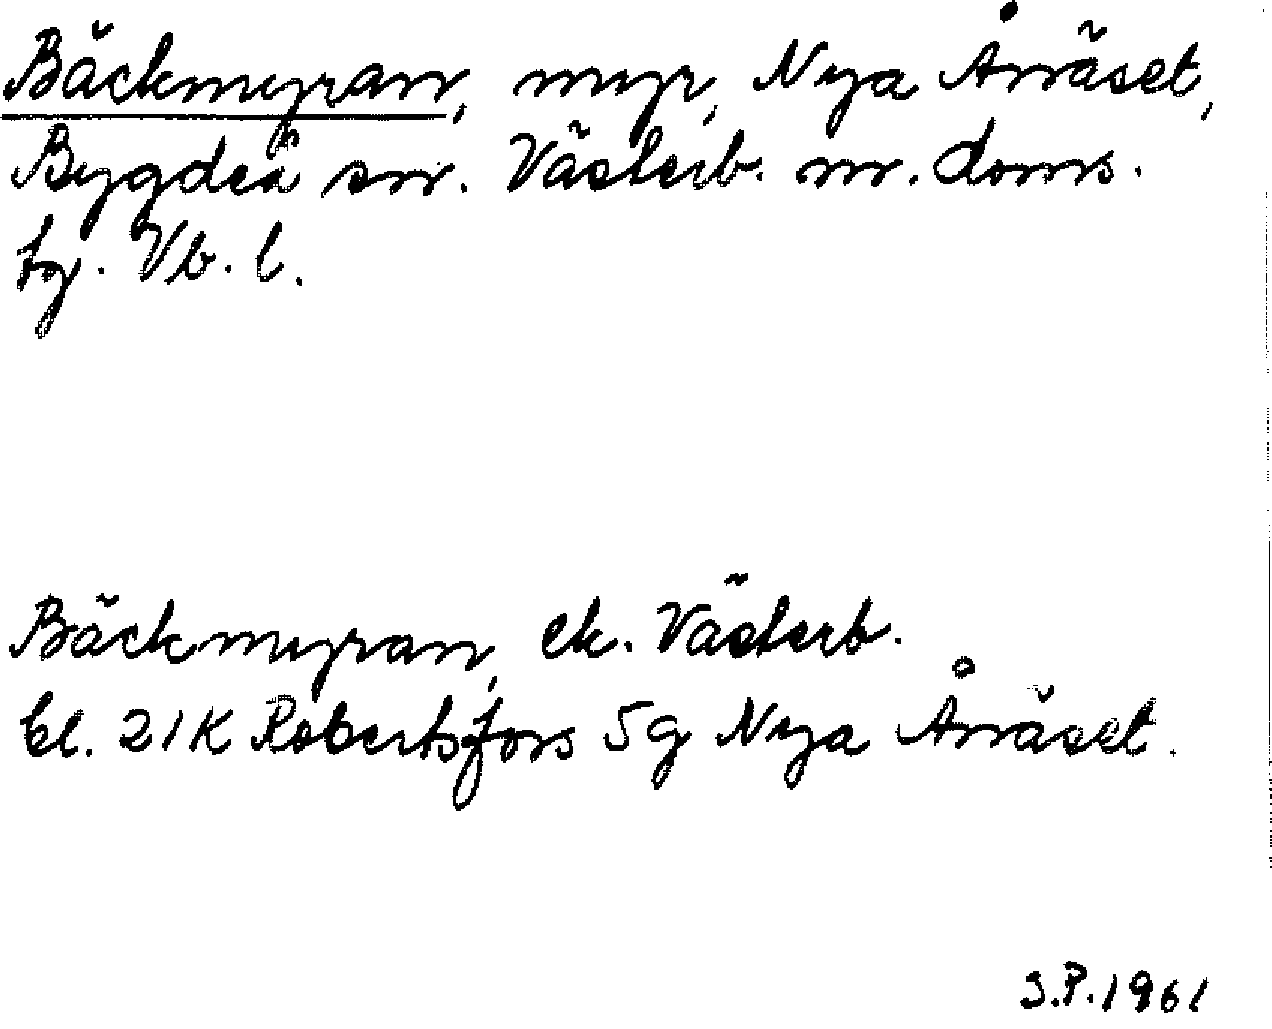 Bäckmyran, myr, Nya Ånäset,
Bygdeå sn. Västerb. n. doms.
tg. Vb. l.
Bäckmyran, ek. Västerb.
bl. 21K Robertsfors 5g Nya Ånäset.
S.P. 1961